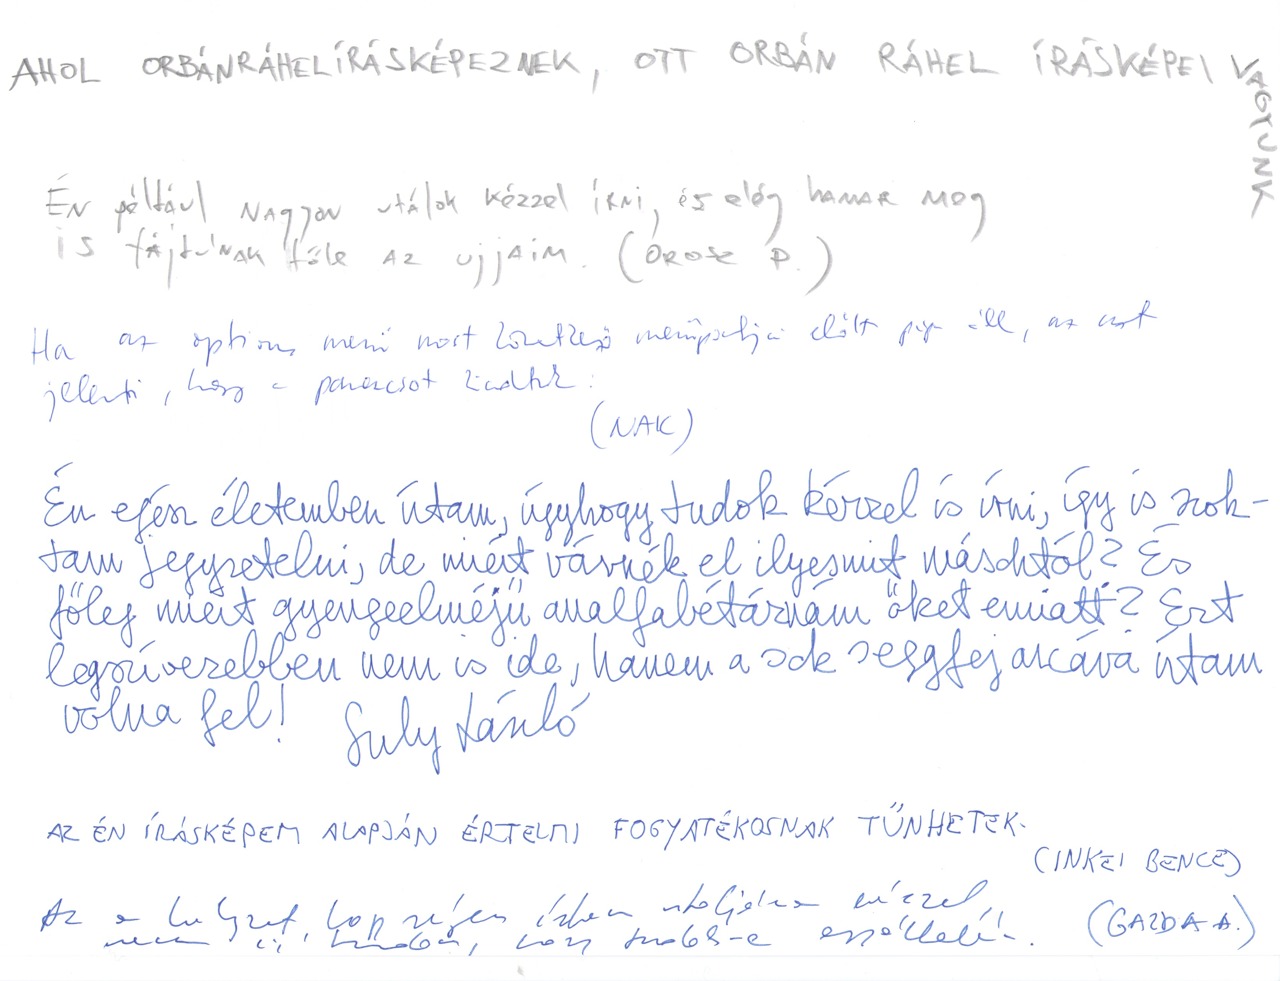 AHOL ORBÁNRÁHELÍRÁSKÉPEZNEK, OTT ORBÁN RÁHEL ÍRÁSKÉPEI VAGYUNK
ÉN például NAGYON utálok kézzel írni, és elég hamar meg
is fájdulnak tőle az ujjaim. (OROSZ P.)
Ha az options menü most következő menüpontja előtt pipa áll, az azt
jelenti, hogy a parancsot kiadták.
(NAK)
Én egész életemben írtam, úgyhogy tudok kézzel is írni, így is szok-
tam jegyzetelni, de miért várnék el ilyesmit másoktól? És
főleg miért gyengeelméjű analfabétáznám őket emiatt? Ezt
legszívesebben nem is ide, hanem a sok seggfej arcává írtam
volna fel! Suly László
AZ ÉN ÍRÁSKÉPEM ALAPJÁN ÉRTELMI FOGYATÉKOSNAK TŰNHETEK.
(INKEI BENCE)
Az a helyzet, hogy írtam utoljára kézzel,
nem is tudom, hogy
(GAZDA A.)